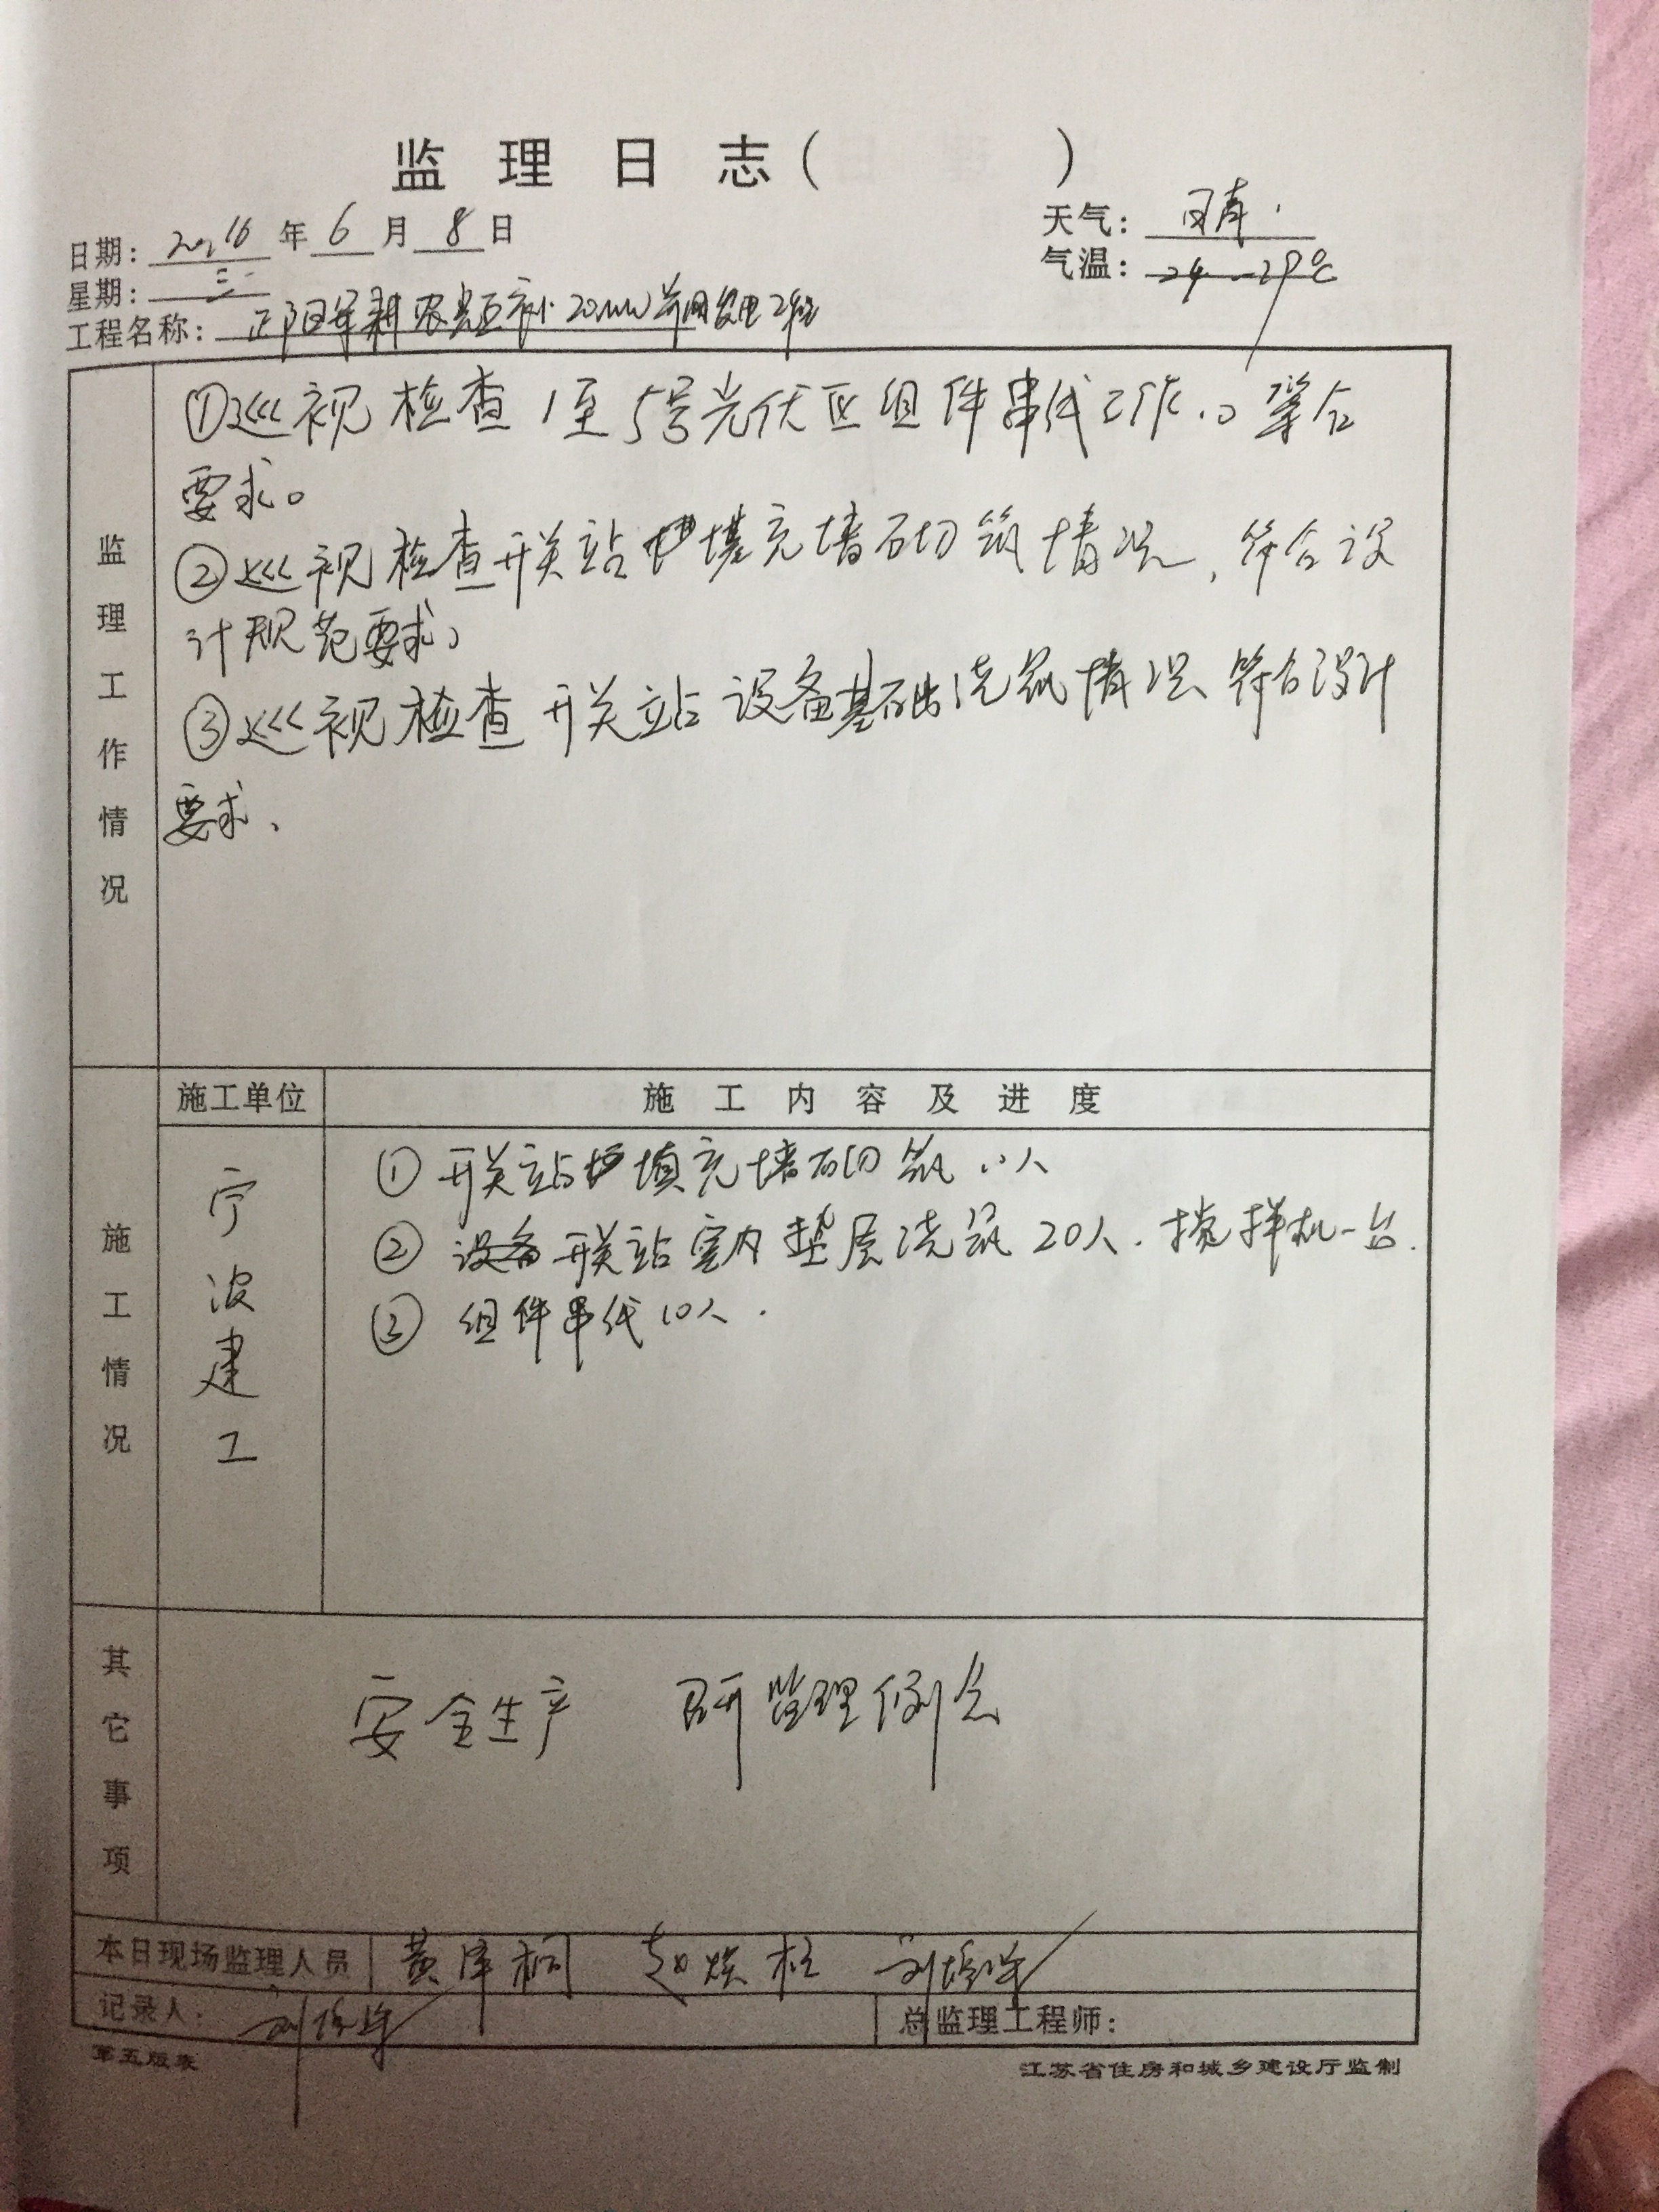 监理日志（ ）
日期：2016年6月8日
天气：晴
星期：三
气温：24-29℃
工程名称：正阳 20MW并网发电工程
监理工作情况
①巡视检查1至5号光伏区组件串线工作 符合
要求。
②巡视检查开关站 填充墙砌筑情况，符合设
计规范要求，
③巡视检查开关站设备基础浇筑情况、符合设计
要求、
施工情况
施工单位
施工内容及进度
宁波建工
①开关站 填充墙砌筑 人
②开关站室内垫层浇筑20人．搅拌机一台．
③组件串线10人．
其它事项
安全生产 召开监理例会
本日现场监理人员 黄泽桐
记录人：
总监理工程师：
第五版表
江苏省住房和城乡建设厅监制